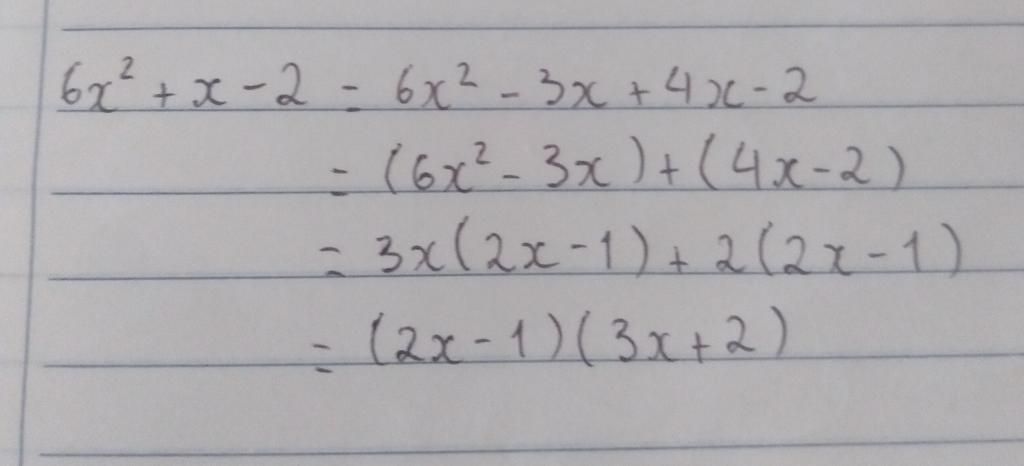 6x² + x - 2 = 6x² - 3x + 4x - 2
= (6x² - 3x) + (4x - 2)
= 3x(2x - 1) + 2(2x - 1)
= (2x - 1)(3x + 2)